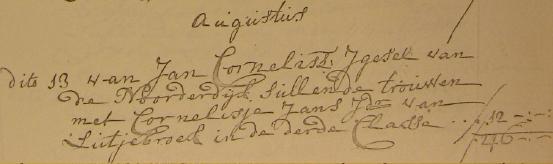 Augustus
dito 13 van Jan Cornelisz: Jgesel van
die Noorderdijk sullende trouwen
met Cornelisje Jans Jd: van
Lutjebroek in de derde Classe .. 12 -:-:-
46 -:-:-